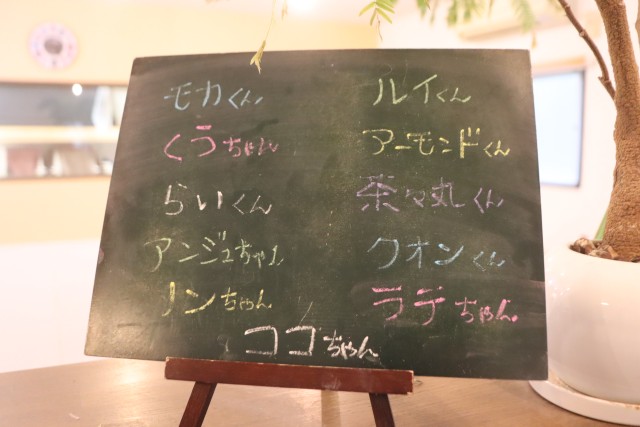 モカくん
くうちゃん
らいくん
アンジュちゃん
ノンちゃん
ルイくん
アーモンドくん
茶々丸くん
クオンくん
ラテちゃん
ココちゃん